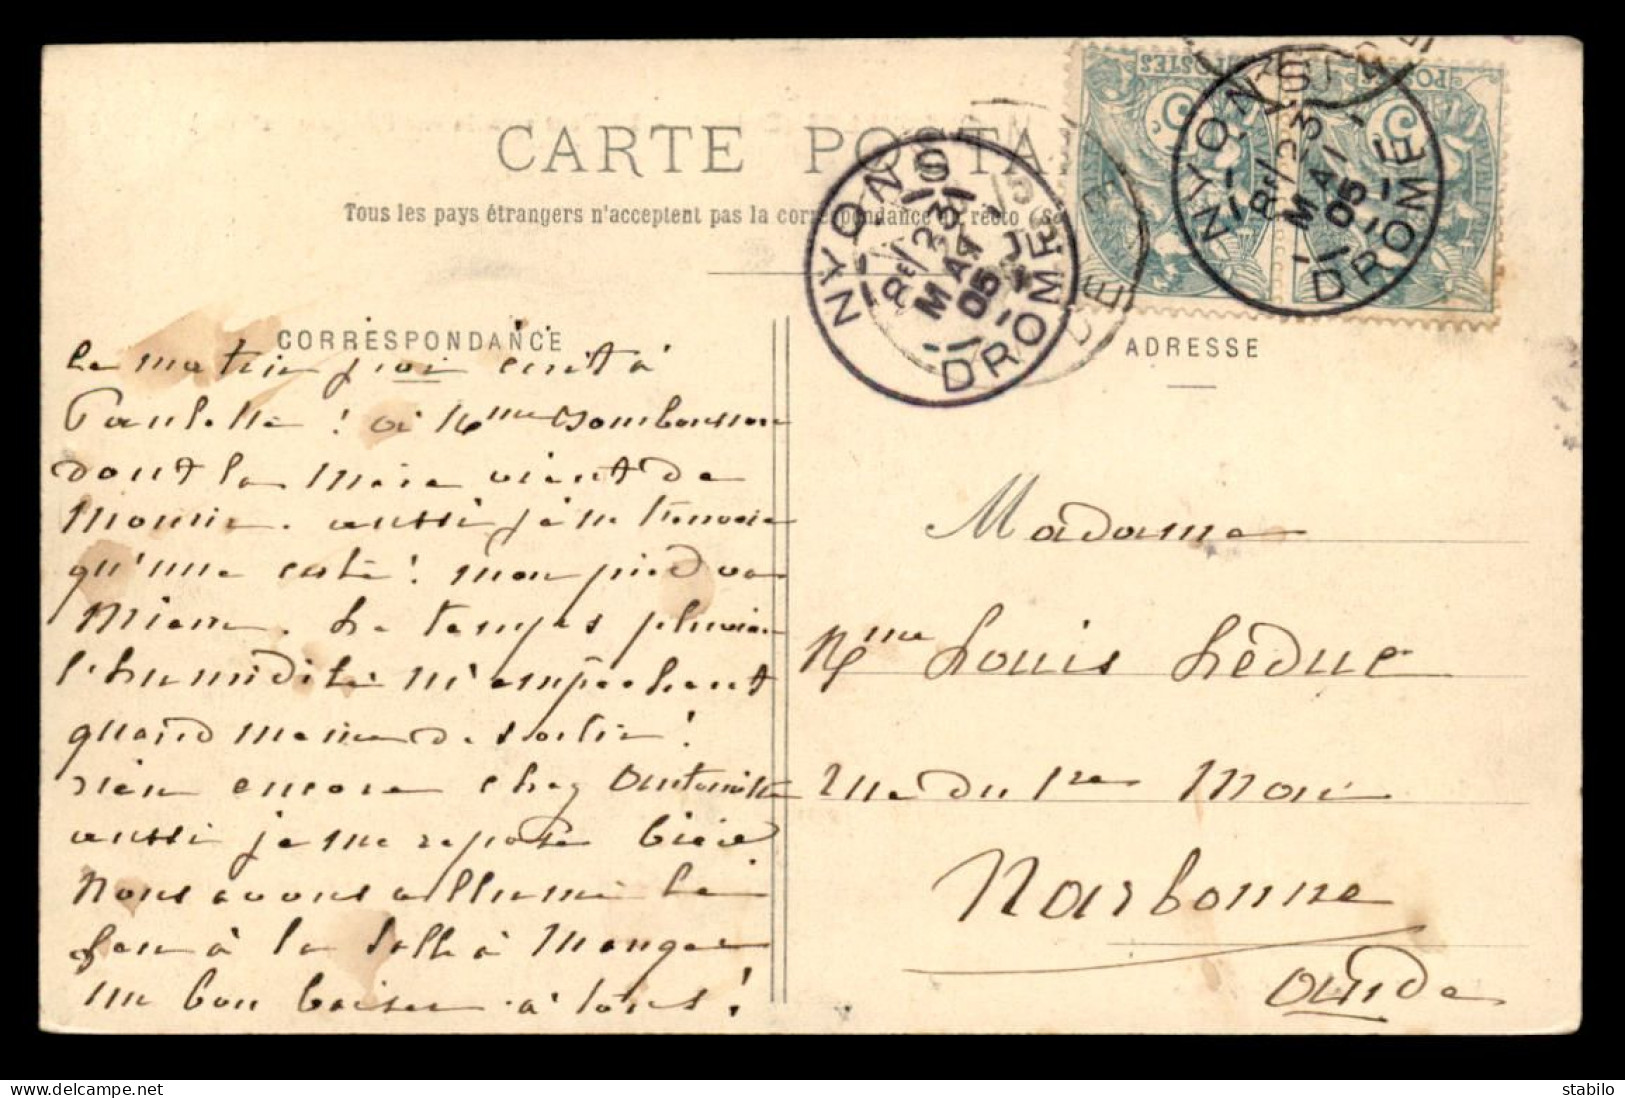 CARTE POSTA
Tous les pays étrangers n'acceptent pas la correspondance au recto (Se
NYONS
Rᵉ/23
MAI
05
DROME
POSTES
5
NYONS
Rᵉ/23
MAI
05
DROME
POS
5
CORRESPONDANCE
ADRESSE
Le matin j'ai écrit à
Paulette ! à Mme
dont la mère vient de
mourir. aussi je ne t'envoie
qu'une carte ! mon pied va
mieux. Le temps pluvieux
l'humidité m'empêchent
quand même de sortir !
rien encore chez Antoinette
aussi je me repose bien
Nous avons allumé le
feu à la salle à manger
un bon baiser à tous !
Madame
Mme Louis Léduc
rue du 1er Mai
Narbonne
Aude
stabilo